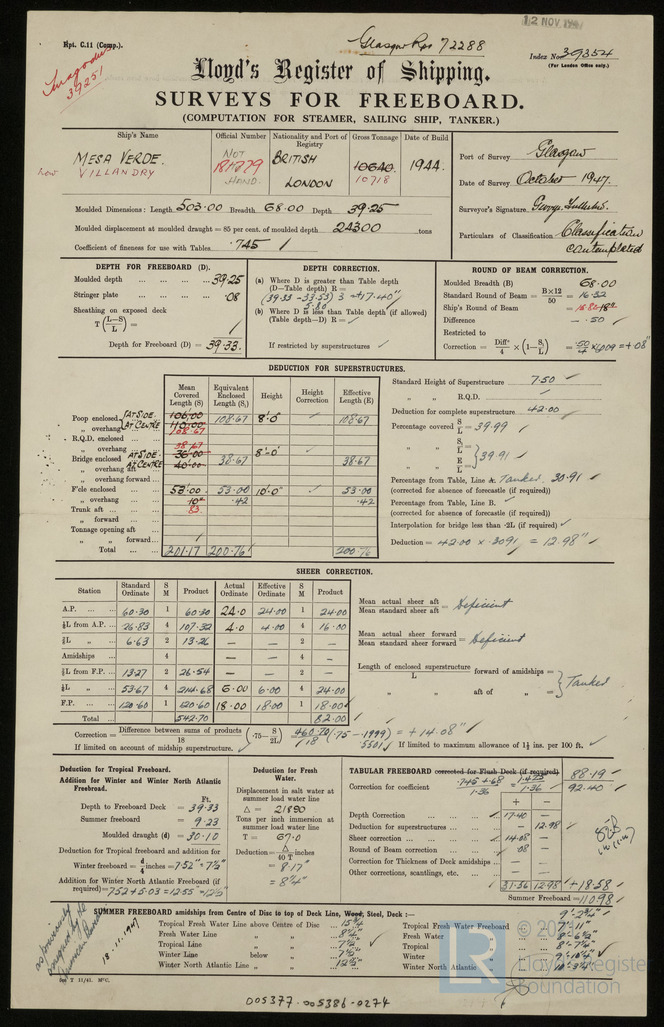 12 NOV 194
Rpt. C.11 (Comp.).
Glasgow Rpt 72288
Index No. 39354
(For London Office only.)
39251
Lloyd's Register of Shipping.
SURVEYS FOR FREEBOARD.
(COMPUTATION FOR STEAMER, SAILING SHIP, TANKER.)
Ship's Name Official Number Nationality and Port of Registry Gross Tonnage Date of Build
MESA VERDE. NOT 181779 HAND. BRITISH LONDON 10640 10718 1944.
Now VILLANDRY
Port of Survey Glasgow
Date of Survey October 1947.
Surveyor's Signature
Particulars of Classification Classification contemplated
Moulded Dimensions: Length 503.00 Breadth 68.00 Depth 39.25
Moulded displacement at moulded draught = 85 per cent. of moulded depth 24300 tons
Coefficient of fineness for use with Tables .745
DEPTH FOR FREEBOARD (D).
Moulded depth ... 39.25
Stringer plate ... .08
Sheathing on exposed deck
T (L-S/L) =
Depth for Freeboard (D) = 39.33.
DEPTH CORRECTION.
(a) Where D is greater than Table depth
(D—Table depth) R =
(39.33 - 33.53) 3 = +17.40"
5.80
(b) Where D is less than Table depth (if allowed)
(Table depth—D) R =
If restricted by superstructures
ROUND OF BEAM CORRECTION.
Moulded Breadth (B) 68.00
Standard Round of Beam = B×12/50 = 16.32
Ship's Round of Beam =
Difference .50
Restricted to
Correction = Diff/4 × (1 - S₁/L) = .50/4 × .6009 = +.08"
DEDUCTION FOR SUPERSTRUCTURES.
Mean Covered Length (S) Equivalent Enclosed Length (S₁) Height Height Correction Effective Length (E)
Poop enclosed AT SIDE 106.00 108.67 8'.0" 108.67
„ overhang AT CENTRE 110.00 108.67
R.Q.D. enclosed
„ overhang 38.67
Bridge enclosed AT SIDE 36.00 38.67 8'.0" 38.67
„ overhang aft AT CENTRE 40.00
„ overhang forward
F'cle enclosed 53.00 53.00 10'.0" 53.00
„ overhang .83 .42 .42
Trunk aft
„ forward
Tonnage opening aft
„ „ forward
Total 201.17 200.76 200.76
Standard Height of Superstructure 7.50
„ „ R.Q.D.
Deduction for complete superstructure 42.00
Percentage covered S/L = 39.99
„ „ S₁/L
„ „ E/L = 39.91
Percentage from Table, Line A. Tanker. 30.91
(corrected for absence of forecastle (if required))
Percentage from Table, Line B.
(corrected for absence of forecastle (if required))
Interpolation for bridge less than .2L (if required)
Deduction = 42.00 × .3091 = 12.98"
SHEER CORRECTION.
Station Standard Ordinate S M Product Actual Ordinate Effective Ordinate S M Product
A.P. 60.30 1 60.30 24.0 24.00 1 24.00
⅙L from A.P. 26.83 4 107.32 4.0 4.00 4 16.00
⅓L „ 6.63 2 13.26 — — 2 —
Amidships 4 — — 4 —
⅓L from F.P. 13.27 2 26.54 — — 2 —
⅙L „ 53.67 4 214.68 6.00 6.00 4 24.00
F.P. 120.60 1 120.60 18.00 18.00 1 18.00
Total 542.70 82.00
Mean actual sheer aft
Mean standard sheer aft = Deficient
Mean actual sheer forward
Mean standard sheer forward = Deficient
Length of enclosed superstructure/L forward of amidships =
„ „ aft of „ = Tanker
Correction = Difference between sums of products/18 (.75 - S/2L) = 460.70/18 (.75 - .1999) = +14.08"
.5501
If limited on account of midship superstructure. If limited to maximum allowance of 1½ ins. per 100 ft.
Deduction for Tropical Freeboard.
Addition for Winter and Winter North Atlantic Freeboard.
Ft.
Depth to Freeboard Deck = 39.33
Summer freeboard = 9.23
Moulded draught (d) = 30.10
Deduction for Tropical freeboard and addition for
Winter freeboard = d/4 inches = 7.52" = 7½"
Addition for Winter North Atlantic Freeboard (if
required) = 7.52 + 5.03 = 12.55 = 12½"
Deduction for Fresh Water.
Displacement in salt water at summer load water line
Δ = 21890
Tons per inch immersion at summer load water line
T = 67.0
Deduction = Δ/40 T inches
= 8.17"
= 8¼"
TABULAR FREEBOARD corrected for Flush Deck (if required) 88.19
Correction for coefficient .745 + .68/1.36 = 1.425/1.36 92.40
+ −
Depth Correction 17.40 —
Deduction for superstructures — 12.98
Sheer correction 14.08 —
Round of Beam correction .08 —
Correction for Thickness of Deck amidships
Other corrections, scantlings, etc.
31.56 12.98 +18.58
Summer Freeboard = 110.98
SUMMER FREEBOARD amidships from Centre of Disc to top of Deck Line, Wood, Steel, Deck :— 9'-2¾"
Tropical Fresh Water Line above Centre of Disc 15¾" Tropical Fresh Water Freeboard 7'-11"
Fresh Water Line „ „ 8¼" Fresh Water „ 8'-6½"
Tropical Line „ „ 7½" Tropical „ 8'-7¼"
Winter Line below „ 7½" Winter „ 9'-10¼"
Winter North Atlantic Line „ „ 12½" Winter North Atlantic „ 10'-3¼"
as previously assigned by the
18.11.1947
© 20
LR
Lloyd's Register
Foundation
005377-005386-0274